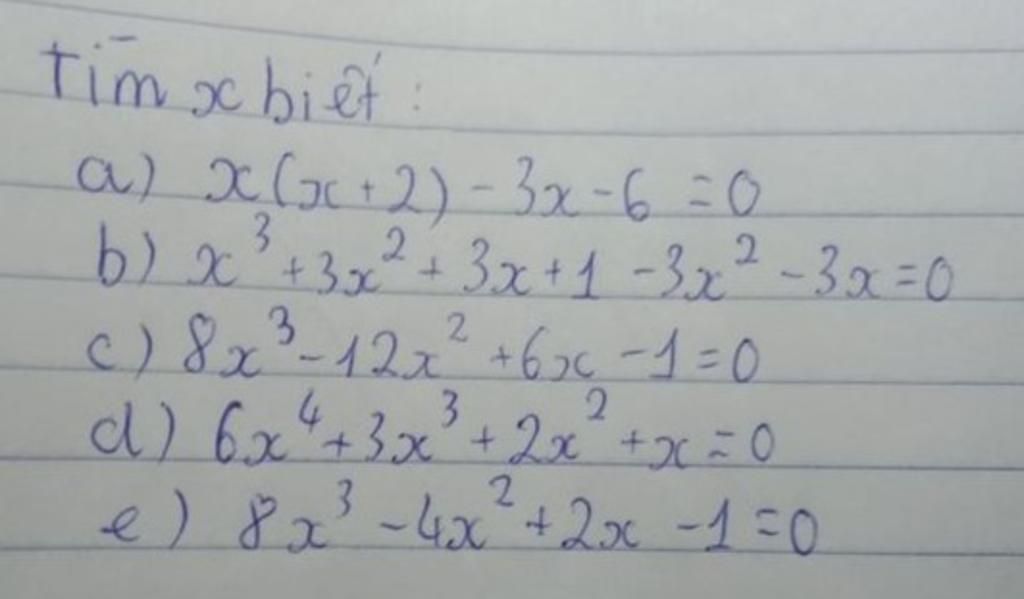 Tìm x biết :
a) x(x+2) - 3x - 6 = 0
b) x³ + 3x² + 3x + 1 - 3x² - 3x = 0
c) 8x³ - 12x² + 6x - 1 = 0
d) 6x⁴ + 3x³ + 2x² + x = 0
e) 8x³ - 4x² + 2x - 1 = 0